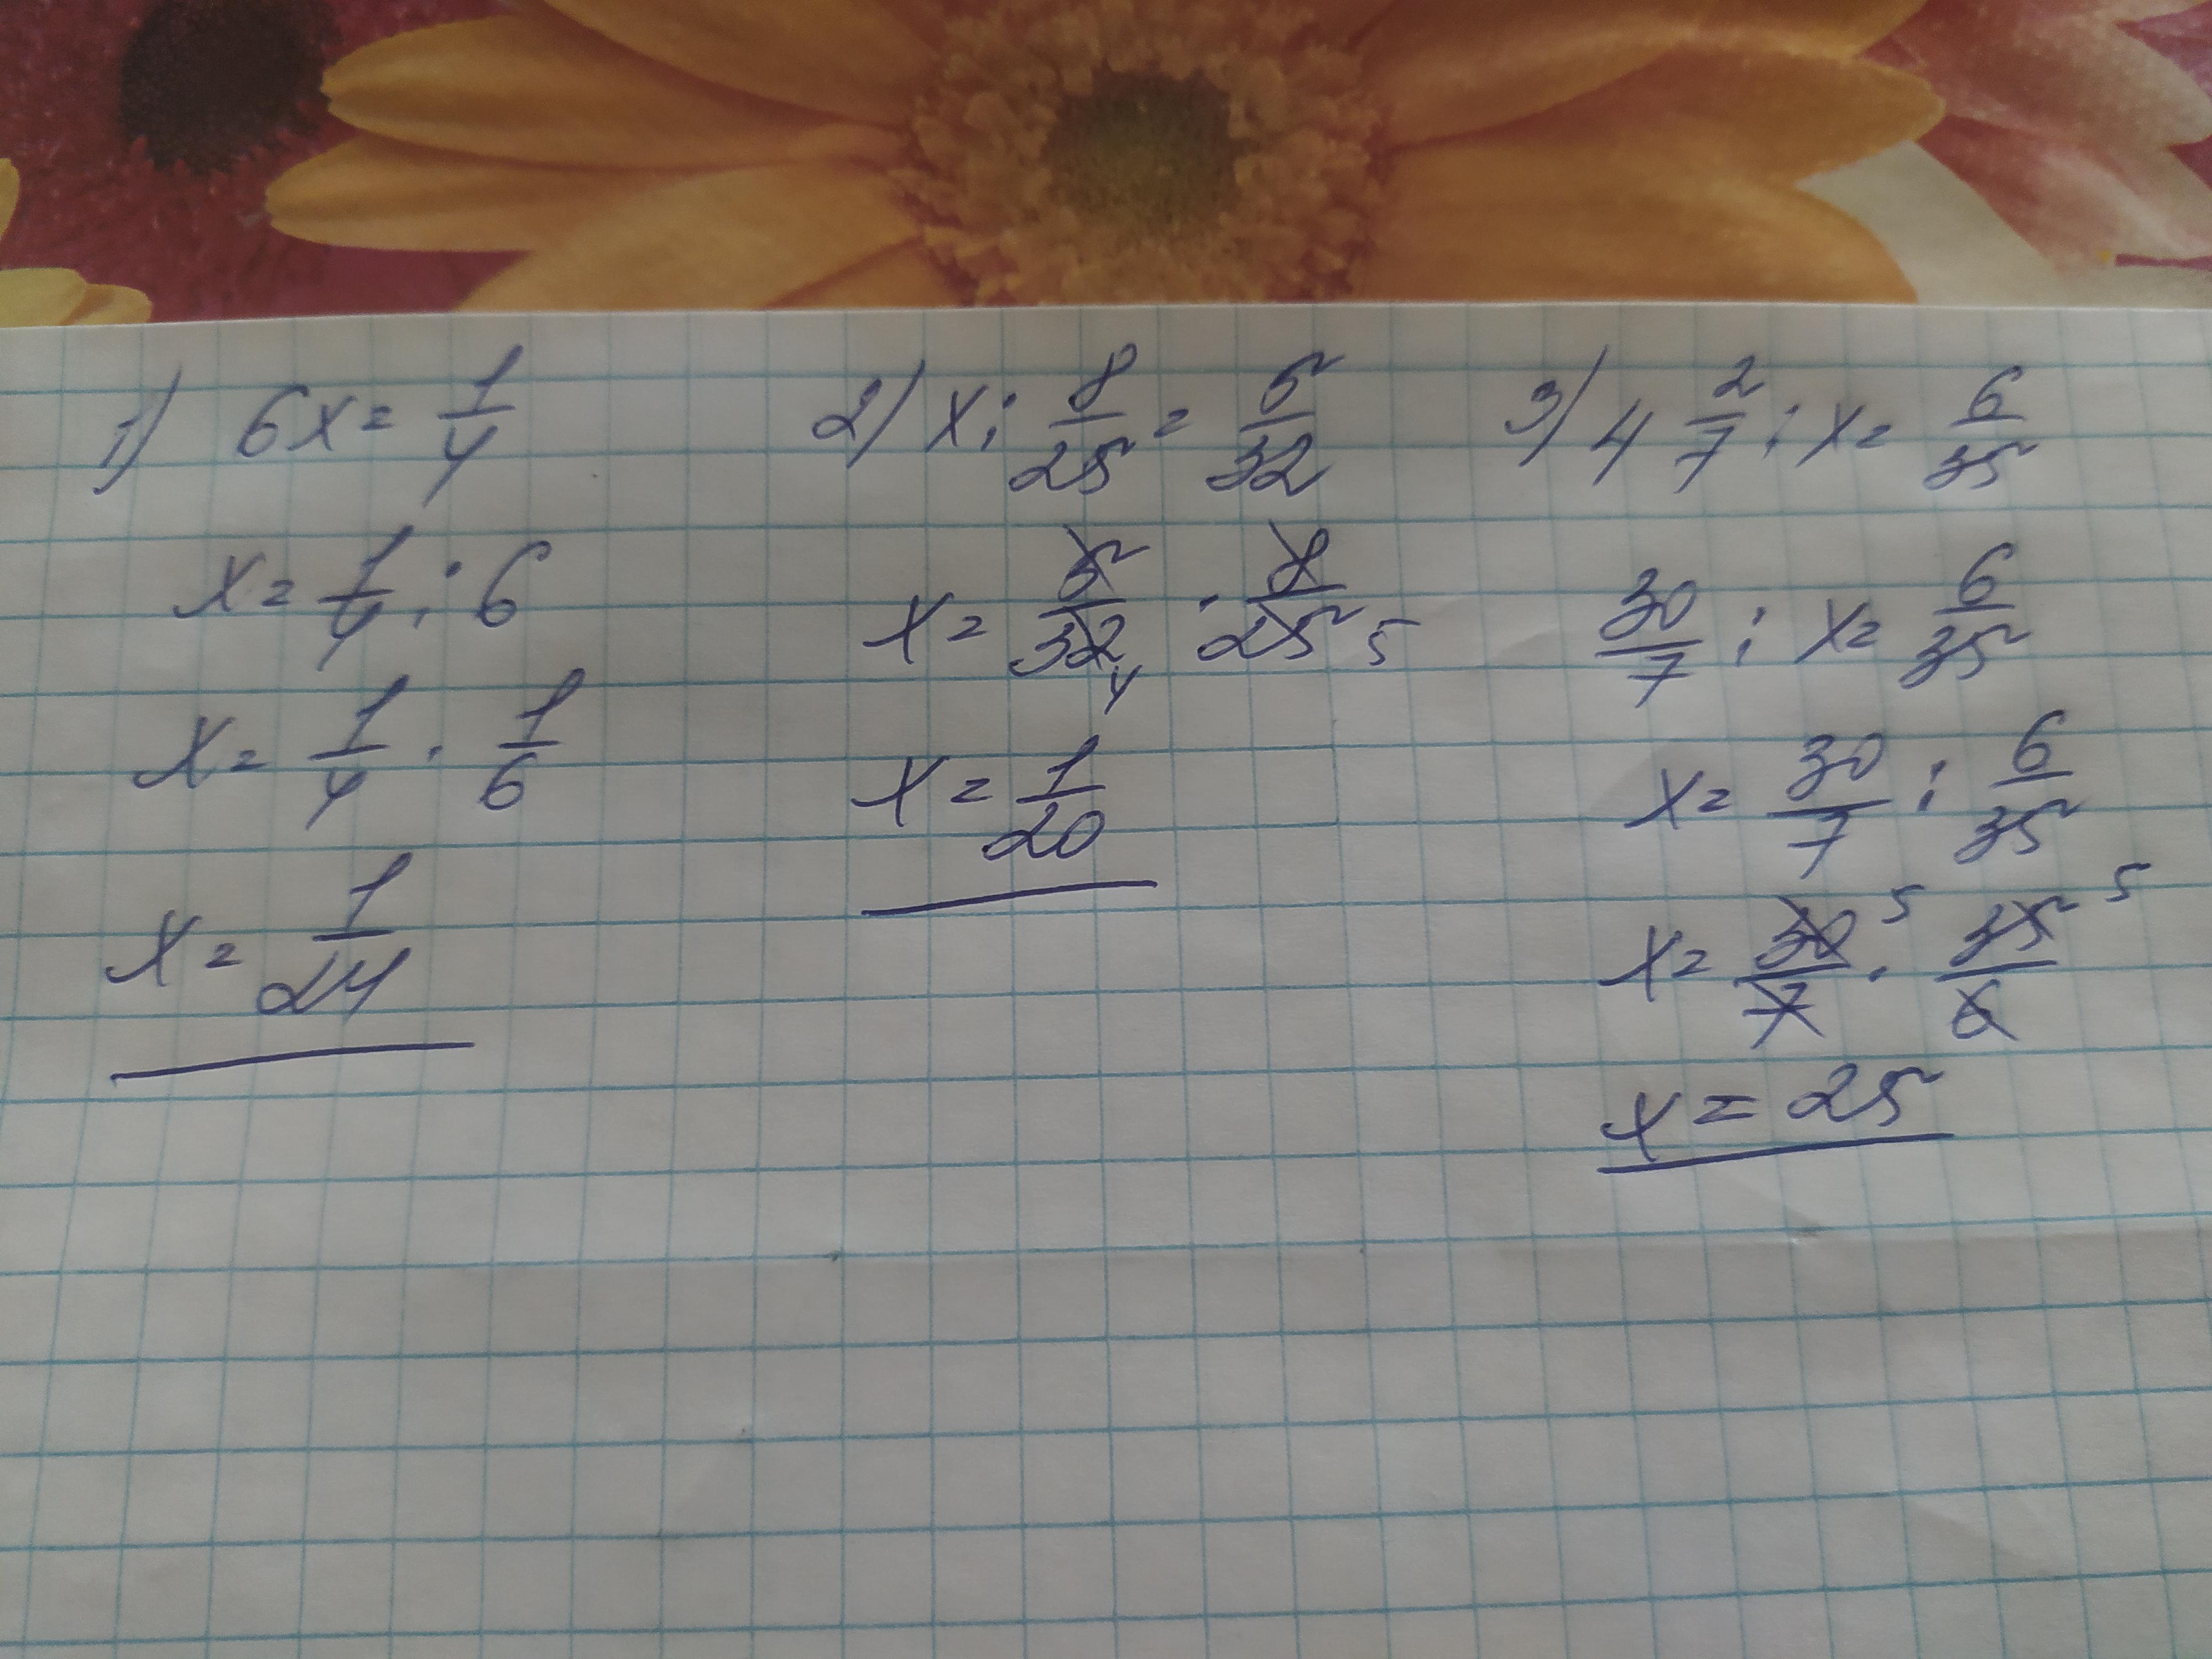 1) 6x = 1/4
x = 1/4 : 6
x = 1/4 · 1/6
x = 1/24
2) x : 8/25 = 5/32
x = 5/32 4 · 8/25 5
x = 1/20
3) 4 2/7 : x = 6/35
30/7 : x = 6/35
x = 30/7 : 6/35
x = 30 5/7 · 35 5/6
x = 25